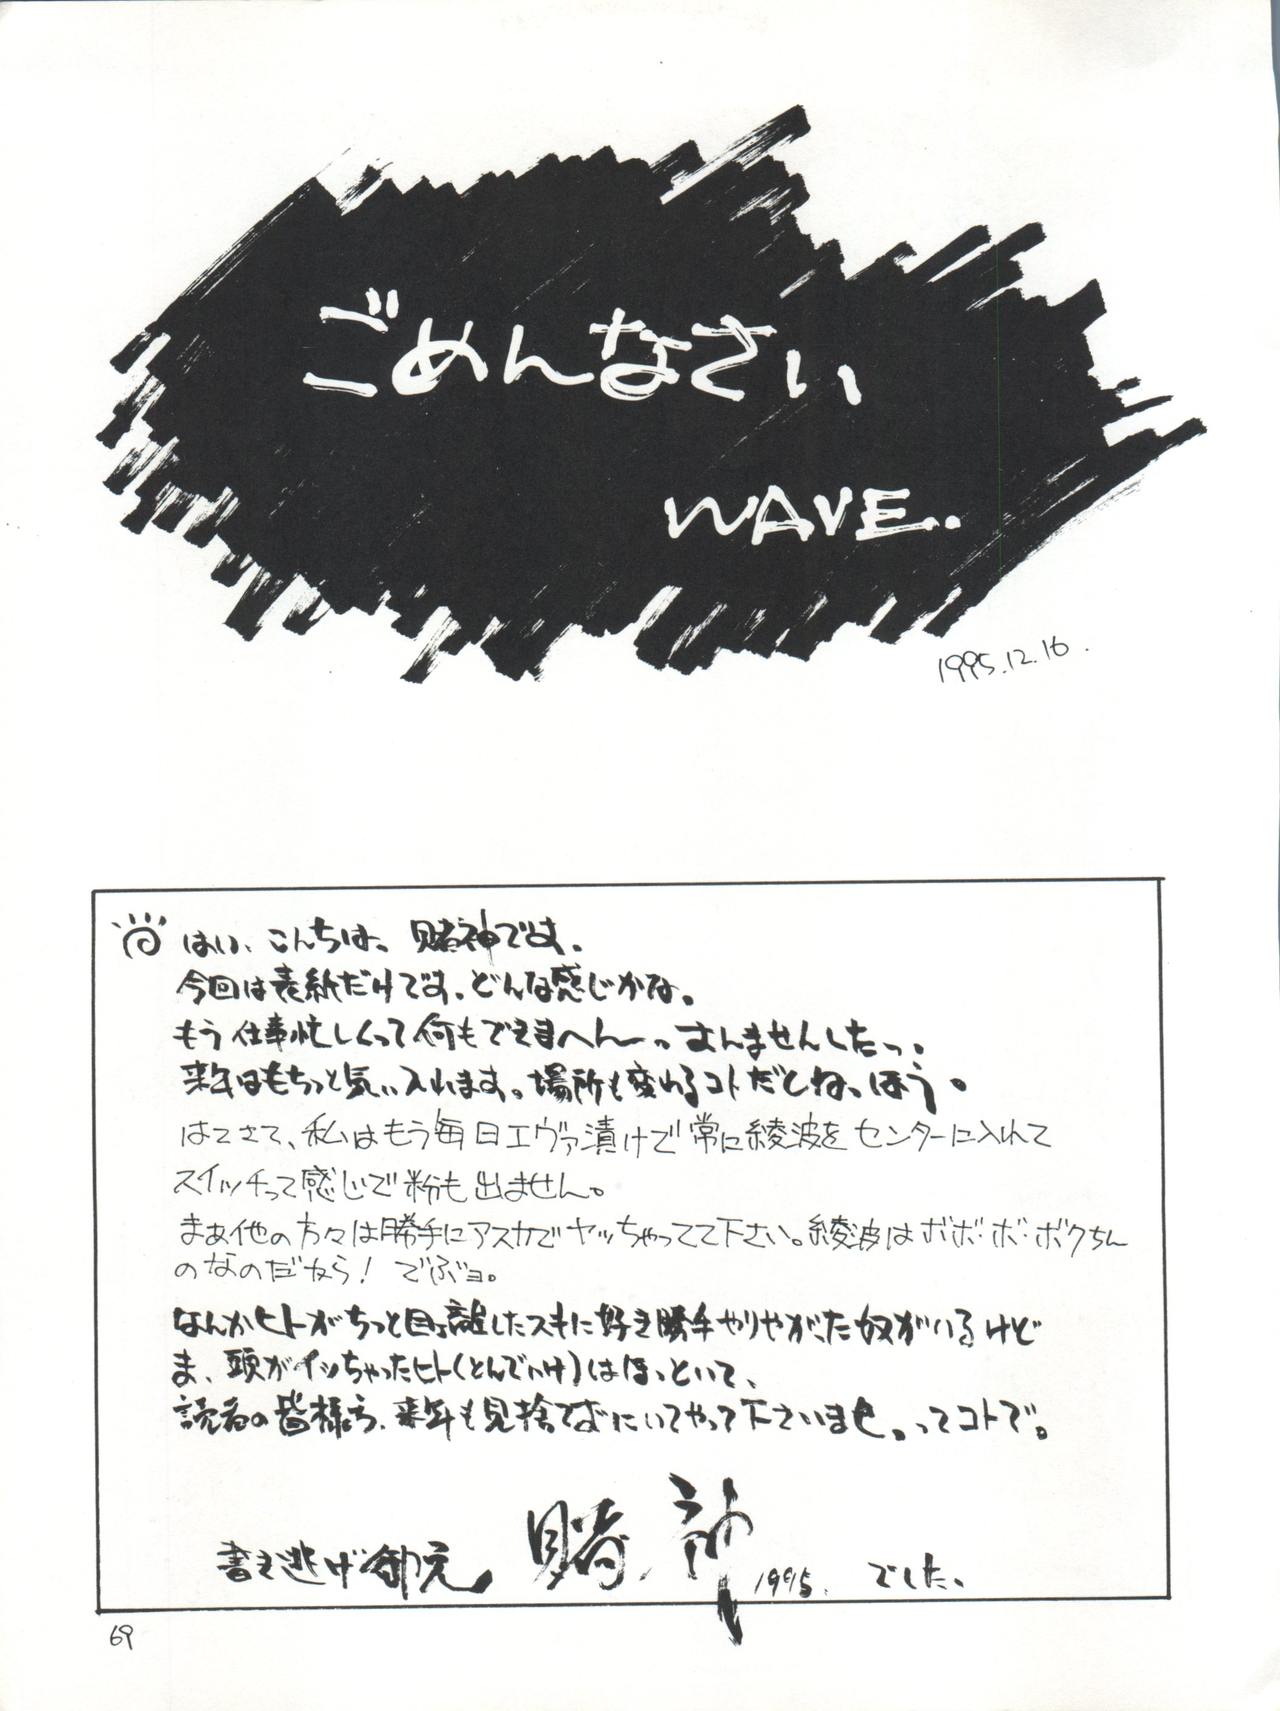 ごめんなさい
WAVE.
1995.12.16.
はい、こんちは、賭神です。
今回は表紙だけです。どんな感じかな。
もう仕事忙しくって何もできまへんーっすんませんしたっ。
来年はもちっと気ぃ入れます。場所も変わるコトだしねっほう。
はてさて、私はもう毎日エヴァ漬けで常に綾波をセンターに入れて
スイッチって感じで粉も出ません。
まぁ他の方々は勝手にアスカでヤッちゃってて下さい。綾波はボボ・ボ・ボクちん
のなのだから! でぶョ。
なんかヒトがちっと目ぇ離したスキに好き勝手やりやがった奴がいるけど
ま、頭がイッちゃったヒト(とんでいけ)はほっといて、
読者の皆様ぅ、来年も見捨てずにいてやって下さいませ。ってコトで。
書き逃げ御免 賭神 1995. でした。
69